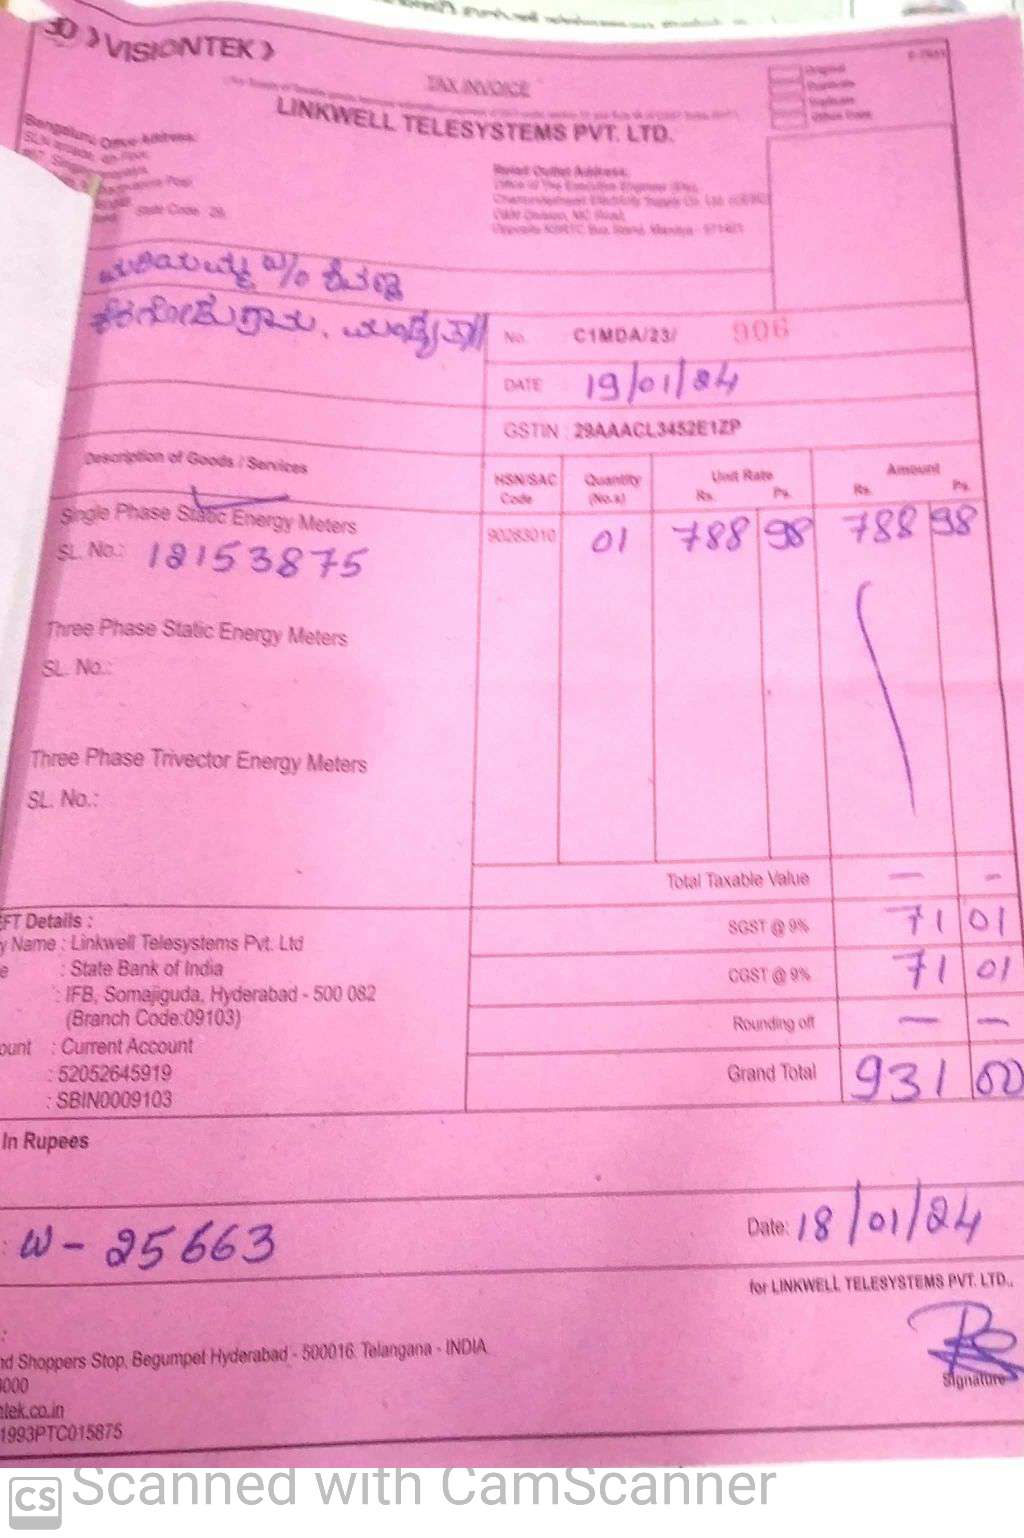 VISIONTEK
TAX INVOICE
Original
Duplicate
LINKWELL TELESYSTEMS PVT. LTD.
Bengaluru Office Address:
State Code : 29
Retail Outlet Address:
Office of The Executive Engineer (Ele),
Chamundeshwari Electricity Supply Co. Ltd.
O&M Division, MC Road,
Opposite KSRTC Bus Stand, Mandya - 571401
No. C1MDA/23/ 906
DATE 19/01/24
GSTIN : 29AAACL3452E1ZP
Description of Goods / Services HSN/SAC Code Quantity (No.s) Unit Rate Rs. Ps. Amount Rs. Ps.
Single Phase Static Energy Meters 90283010 01 788 98 788 98
SL. No.: 12153875
Three Phase Static Energy Meters
SL. No.:
Three Phase Trivector Energy Meters
SL. No.:
Total Taxable Value — —
SGST @ 9% 71 01
CGST @ 9% 71 01
Rounding off — —
Grand Total 931 00
EFT Details :
y Name : Linkwell Telesystems Pvt. Ltd
e : State Bank of India
: IFB, Somajiguda, Hyderabad - 500 082
(Branch Code:09103)
ount : Current Account
: 52052645919
: SBIN0009103
In Rupees
: W - 25663 Date: 18/01/24
for LINKWELL TELESYSTEMS PVT. LTD.,
Signature
nd Shoppers Stop, Begumpet Hyderabad - 500016. Telangana - INDIA
0000
ntek.co.in
1993PTC015875
CS Scanned with CamScanner